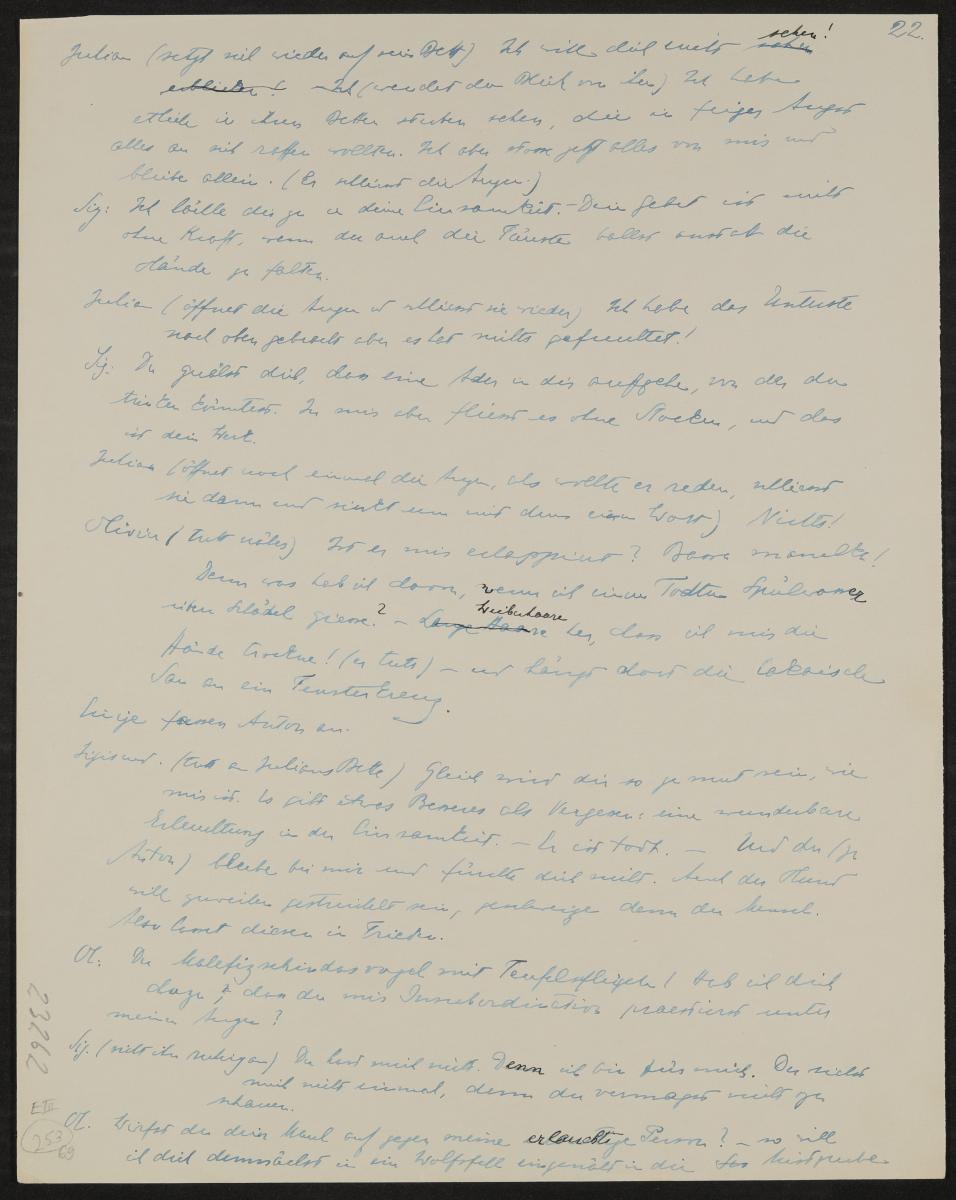 22.
Julian (setzt sich wieder auf sein Bett) Ich will dich nicht sehen!
erblicken! – Ich (wendet den Blick von ihm) Ich habe
etliche in ihren Betten sterben sehen, die in feiger Angst
alles an sich raffen wollten. Ich aber stosse jetzt alles von mir und
bleibe allein. (Er schliesst die Augen.)
Sig: Ich hülle dich ja in deine Einsamkeit. – Dein Gebet ist nicht
ohne Kraft, wenn du auch die Fäuste ballst anstatt die
Hände zu falten.
Julian (öffnet die Augen u schliesst sie wieder) Ich habe das Unterste
nach oben gebracht aber es hat nichts gefruchtet!
Sig: Du quälst dich, dass eine Ader in dir aufgehe, von der du
trinken könntest. In mir aber fliesst es ohne Stocken, und das
ist dein Werk.
Julian (öffnet noch einmal die Augen, als wollte er reden, schliesst
sie dann und sinkt um mit dem Wort) Nichts!
Olivier (tritt näher) Ist er mir echappiert? Basta manelka!
Denn was hab ich davon, wenn ich einem Todten Spülwasser
übern Schädel giesse? – Lange Haare Weiberhaare her, dass ich mir die
Hände trockne! (er tuts) – und hängt dort die lakaische
Sau an ein Fensterkreuz.
Einige fassen Anton an.
Sigismund. (tritt an Julians Bette) Gleich wird dir so zu mut sein, wie
mir ist. Es gibt etwas Besseres als Vergessen: eine wunderbare
Erleuchtung in der Einsamkeit. – Er ist todt. – Und du (zu
Anton) bleibe bei mir und fürchte dich nicht. Auch der Hund
will zuweilen gestreichelt sein, geschweige denn der Mensch.
Also lasset diesen in Frieden.
Ol: Du Malefizschindersvogel mit Teufelsflügeln! Hab ich dich
dazu, dass du mir Insubordination praestierst unter
meinen Augen?
Sig. (sieht ihn ruhig an) Du hast mich nicht. Denn ich bin für mich. Du siehst
mich nicht einmal, denn du vermagst nicht zu
schauen.
Ol. Wirfst du dein Maul auf gegen meine erlauchtige Person? – so will
ich dich demnächst in ein Wolfsfell eingenäht in die Mistgrube
23262
E III
253
69